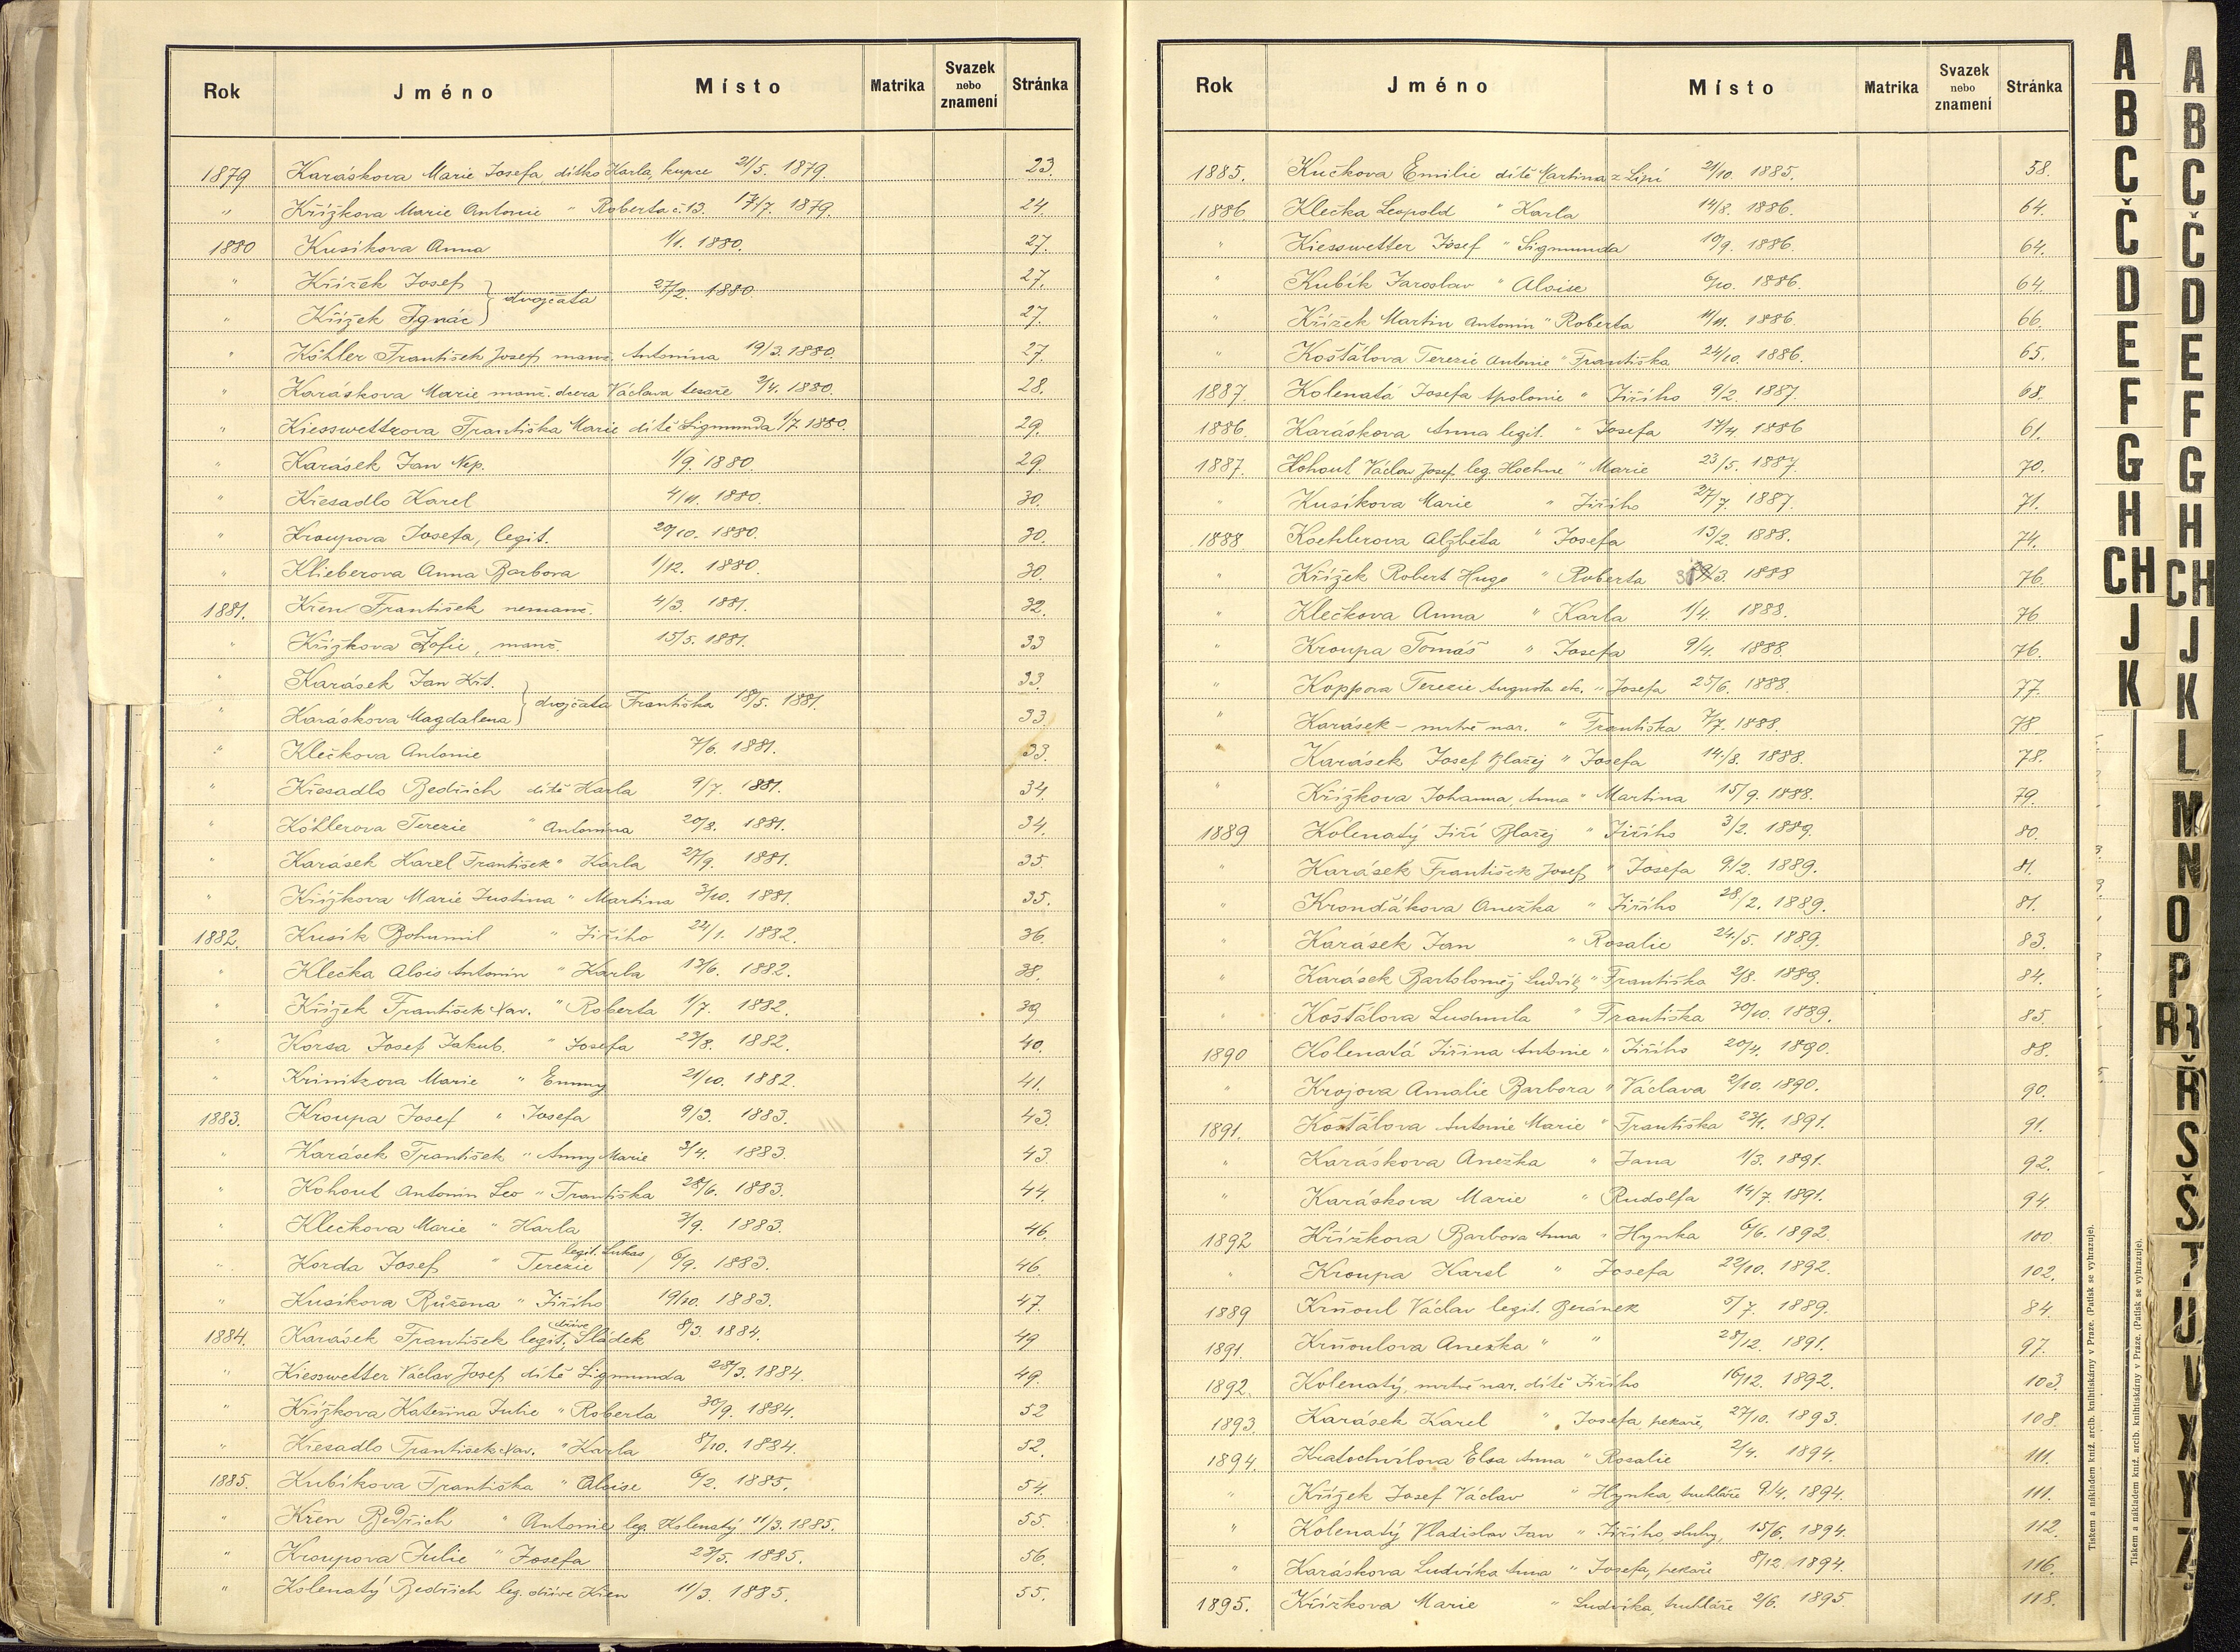 Rok Jméno Místo Matrika Svazek nebo znamení Stránka
1879 Karáskova Marie Josefa, dítko Karla, kupce 21/5. 1879 23.
" Křížkova Marie Antonie " Roberta č. 13. 17/7. 1879. 24.
1880 Kusíkova Anna 1/1. 1880. 27.
" Křížek Josef 27.
} dvojčata 27/2. 1880.
" Křížek Ignác 27.
" Köhler František Josef, manž. Antonína 19/3. 1880. 27.
" Karáskova Marie manž. dcera Václava tesaře 2/4. 1880. 28.
" Kiesswettrova Františka Marie dítě Sigmunda 1/7 1880. 29.
" Karásek Jan Nep. 1/9. 1880. 29.
" Křesadlo Karel 4/11. 1880. 30.
" Kroupova Josefa, legit. 20/10. 1880. 30.
" Klieberova Anna Barbora 1/12. 1880. 30.
1881. Křen František nemanž. 4/3. 1881. 32.
" Křížkova Žofie, manž. 15/5. 1881. 33
" Karásek Jan Křt. 33.
} dvojčata Františka 18/5. 1881.
" Karáskova Magdalena 33.
" Klečkova Antonie 7/6. 1881. 33.
" Křesadlo Bedřich dítě Karla 9/7. 1881. 34.
" Köhlerova Terezie " Antonína 20/8. 1881. 34.
" Karásek Karel František " Karla 27/9. 1881. 35.
" Křížkova Marie Justina " Martina 3/10. 1881. 35.
1882. Kusík Bohumil " Jiřího 22/1. 1882. 36.
" Klečka Alois Antonín " Karla 13/6. 1882. 38.
" Křížek František Xav. " Roberta 1/7. 1882. 39
" Korsa Josef Jakub. " Josefa 23/8. 1882. 40.
" Krinitzova Marie " Emmy 21/10. 1882. 41.
1883. Kroupa Josef " Josefa 9/3. 1883. 43.
" Karásek František " Anny Marie 3/4. 1883. 43.
" Kohout Antonín Leo " Františka 28/6. 1883. 44.
" Klečkova Marie " Karla 3/9. 1883. 46.
legit. Lukas
" Korda Josef " Terezie / 6/9. 1883. 46.
" Kusíkova Růžena " Jiřího 19/10. 1883. 47.
dříve
1884. Karásek František legit. Sládek 8/3. 1884. 49
" Kiesswetter Václav Josef, dítě Sigmunda 28/3. 1884. 49.
" Křížkova Kateřina Julie " Roberta 30/9. 1884. 52
" Křesadlo František Xav. " Karla 8/10. 1884. 52.
1885. Kubíkova Františka " Aloise 6/2. 1885. 54.
" Křen Bedřich " Antonie leg. Kolenatý 11/3. 1885. 55.
" Kroupova Julie " Josefa 23/5. 1885. 56.
" Kolenatý Bedřich leg. dříve Křen 11/3. 1885. 55.
Rok Jméno Místo Matrika Svazek nebo znamení Stránka
1885. Kučkova Emilie dítě Martina z Lipí 21/10. 1885. 58.
1886. Klečka Leopold " Karla 14/8. 1886. 64.
" Kiesswetter Josef " Sigmunda 10/9. 1886. 64.
" Kubík Jaroslav " Aloise 6/10. 1886. 64.
" Křížek Martin Antonín " Roberta 11/11. 1886. 66.
" Košťálova Terezie Antonie " Františka 24/10. 1886. 65.
1887. Kolenatá Josefa Apolonie " Jiřího 9/2. 1887. 68.
1886. Karáskova Anna legit. " Josefa 17/4. 1886 61.
1887. Kohout Václav Josef, leg. Hoehne " Marie 23/5. 1887. 70.
" Kusíkova Marie " Jiřího 27/7. 1887. 71.
1888 Koehlerova Alžběta " Josefa 13/2. 1888. 74.
" Křížek Robert Hugo " Roberta 31/3. 1888 76.
" Klečkova Anna " Karla 1/4. 1888. 76
" Kroupa Tomáš " Josefa 9/4. 1888. 76.
" Koppova Terezie Augusta " Josefa 25/6. 1888. 77.
" Karásek - mrtvě nar. " Františka 7/7. 1888. 78.
" Karásek Josef Blažej " Josefa 14/8. 1888. 78.
" Křížkova Johanna, Anna " Martina 15/9. 1888. 79.
1889 Kolenatý Jiří Blažej " Jiřího 3/2. 1889. 80.
" Karásek František Josef " Josefa 9/2. 1889. 81.
" Kronďákova Anežka " Jiřího 28/2. 1889. 81.
" Karásek Jan " Rosalie 24/5. 1889. 83.
" Karásek Bartoloměj Ludvík " Františka 2/8. 1889. 84.
" Košťálova Ludmila " Františka 30/10. 1889. 85.
1890 Kolenatá Jiřina Antonie " Jiřího 20/4. 1890. 88.
" Krojova Amalie Barbora " Václava 2/10. 1890. 90.
1891. Košťálova Antonie Marie " Františka 23/1. 1891. 91.
" Karáskova Anežka " Jana 1/3. 1891. 92.
" Karáskova Marie " Rudolfa 14/7. 1891. 94.
1892 Křížkova Barbora Anna " Hynka 6/6. 1892. 100
" Kroupa Karel " Josefa 22/10. 1892. 102.
1889 Krňoul Václav legit. Beránek 5/7. 1889. 84.
1891. Krňoulova Anežka " " 28/12. 1891. 97.
1892. Kolenatý, mrtvě nar. dítě Jiřího 16/12. 1892. 103.
1893. Karásek Karel " Josefa, pekaře, 27/10. 1893. 108.
1894. Kratochvílova Elsa Anna " Rosalie 2/4. 1894. 111.
" Křížek Josef Václav " Hynka, truhláře 9/4. 1894. 111.
" Kolenatý Vladislav Jan " Jiřího, sluhy, 15/6. 1894. 112.
" Karáskova Ludvíka Anna " Josefa, pekaře 8/12. 1894. 116.
1895. Křížkova Marie " Ludvíka, truhláře 2/6. 1895. 118.
Tiskem a nákladem kniž. arcib. knihtiskárny v Praze. (Patisk se vyhrazuje).
Tiskem a nákladem kniž. arcib. knihtiskárny v Praze. (Patisk se vyhrazuje).
A
B
C
Č
D
E
F
G
H
CH
J
K
A
B
C
Č
D
E
F
G
H
CH
J
K
L
M
N
O
P
R
Ř
S
Š
T
U
V
X
Y
Z